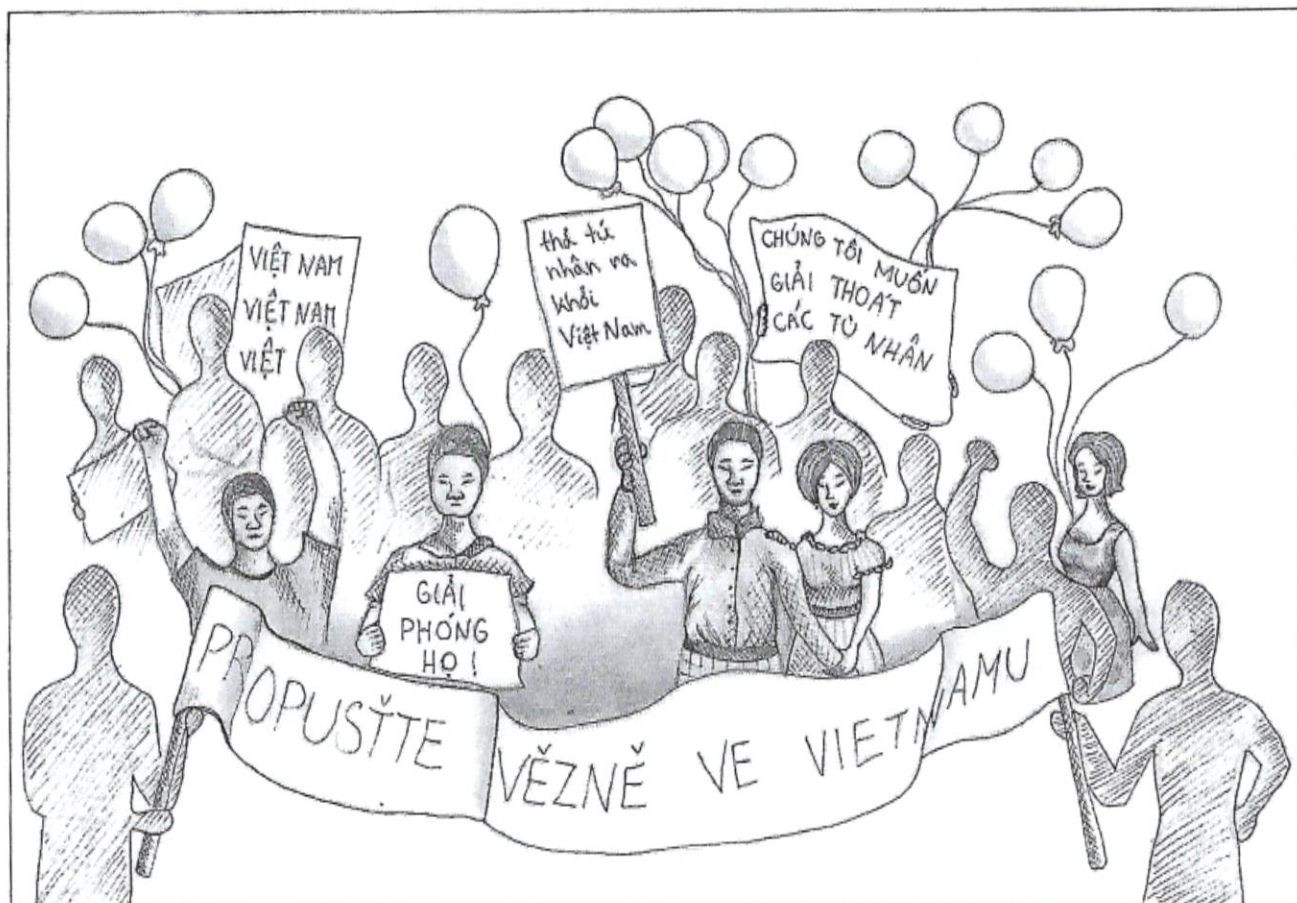 VIỆT NAM
VIỆT NAM
VIỆT
thả tú
nhân ra
khỏi
Việt Nam
CHÚNG TÔI MUỐN
GIẢI THOÁT
CÁC TÙ NHÂN
GIẢI
PHÓNG
HỌ !
PROPUSŤTE VĚZNĚ VE VIETNAMU